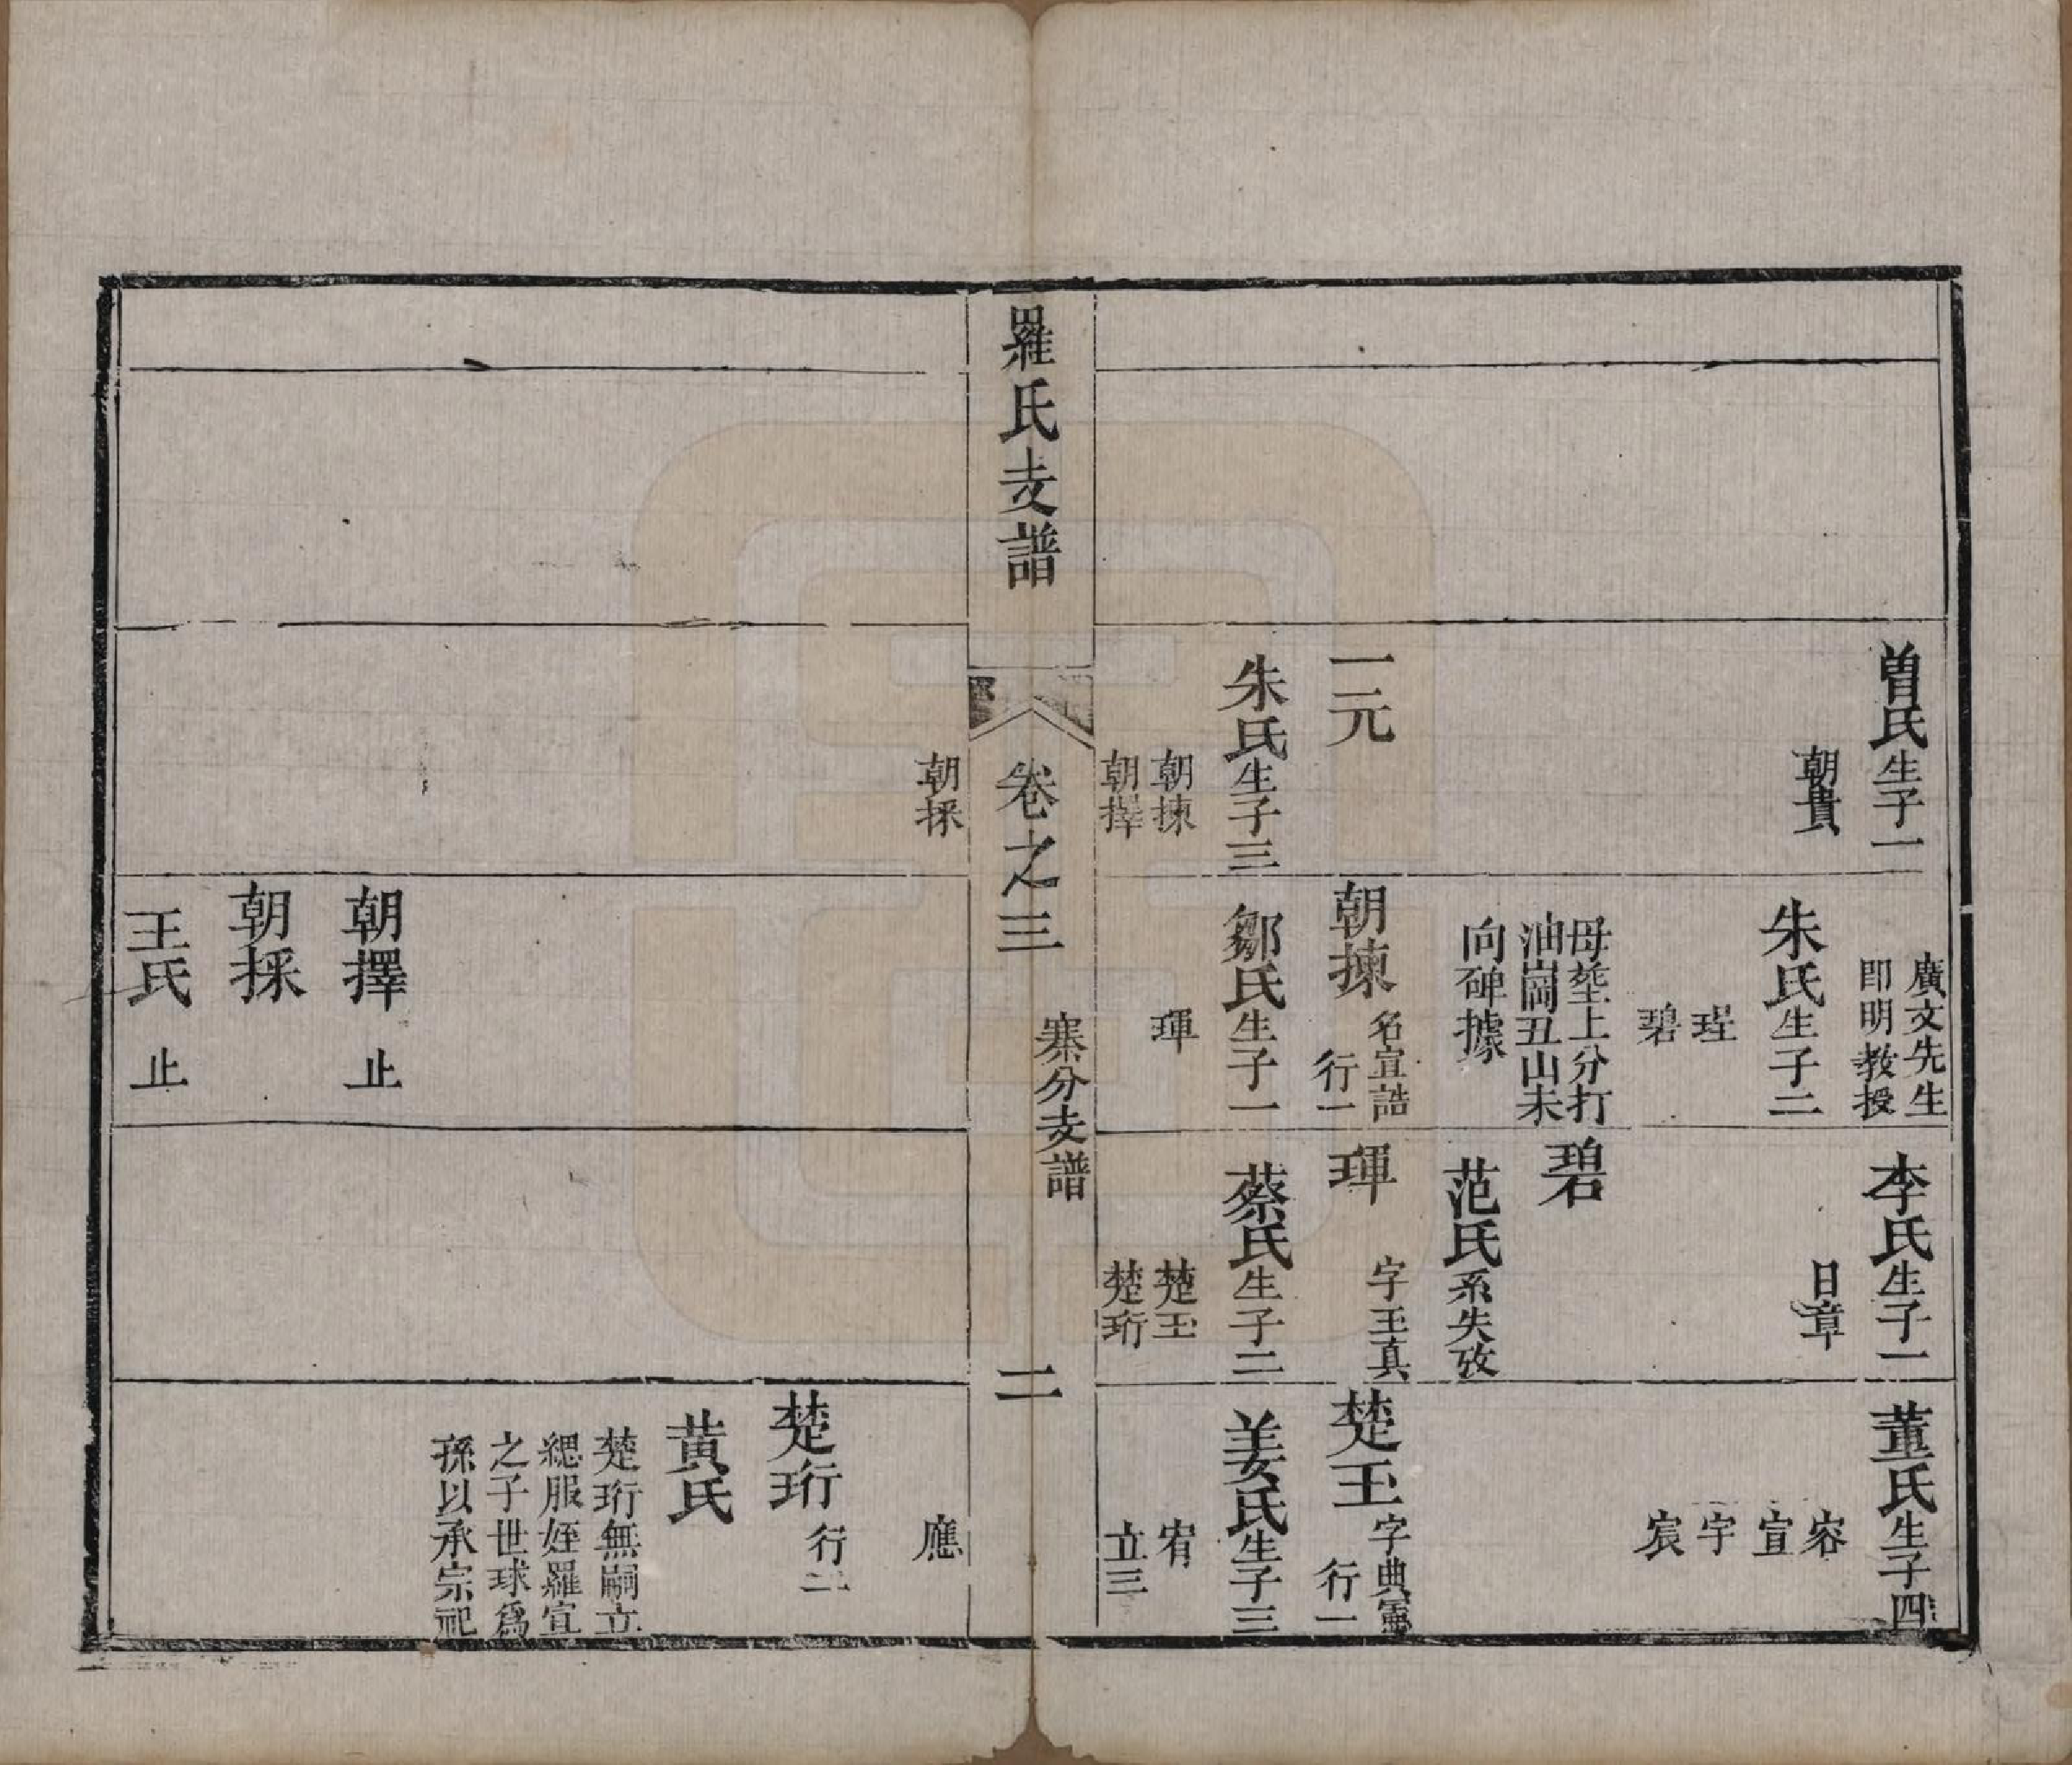 曾氏生子一
朝貴
一元
朱氏生子三
朝揀
朝擇
廣文先生
即明教授
朱氏生子二
珵
碧
母塋上分打
油崗丑山未
向碑據
朝揀
名宜誥
行一
鄒氏生子一
琿
李氏生子一
日章
碧
范氏系失攷
琿
字玉真
蔡氏生子二
楚玉
楚珩
董氏生子四
容
宣
宇
宸
楚玉
字典
行一
姜氏生子三
宥
立三
羅氏支譜
卷之三
寨分支譜
二
朝採
朝擇 止
朝採
王氏 止
應
楚珩
行二
黄氏
楚珩無嗣立
緦服姪羅宣
之子世球爲
孫以承宗祀